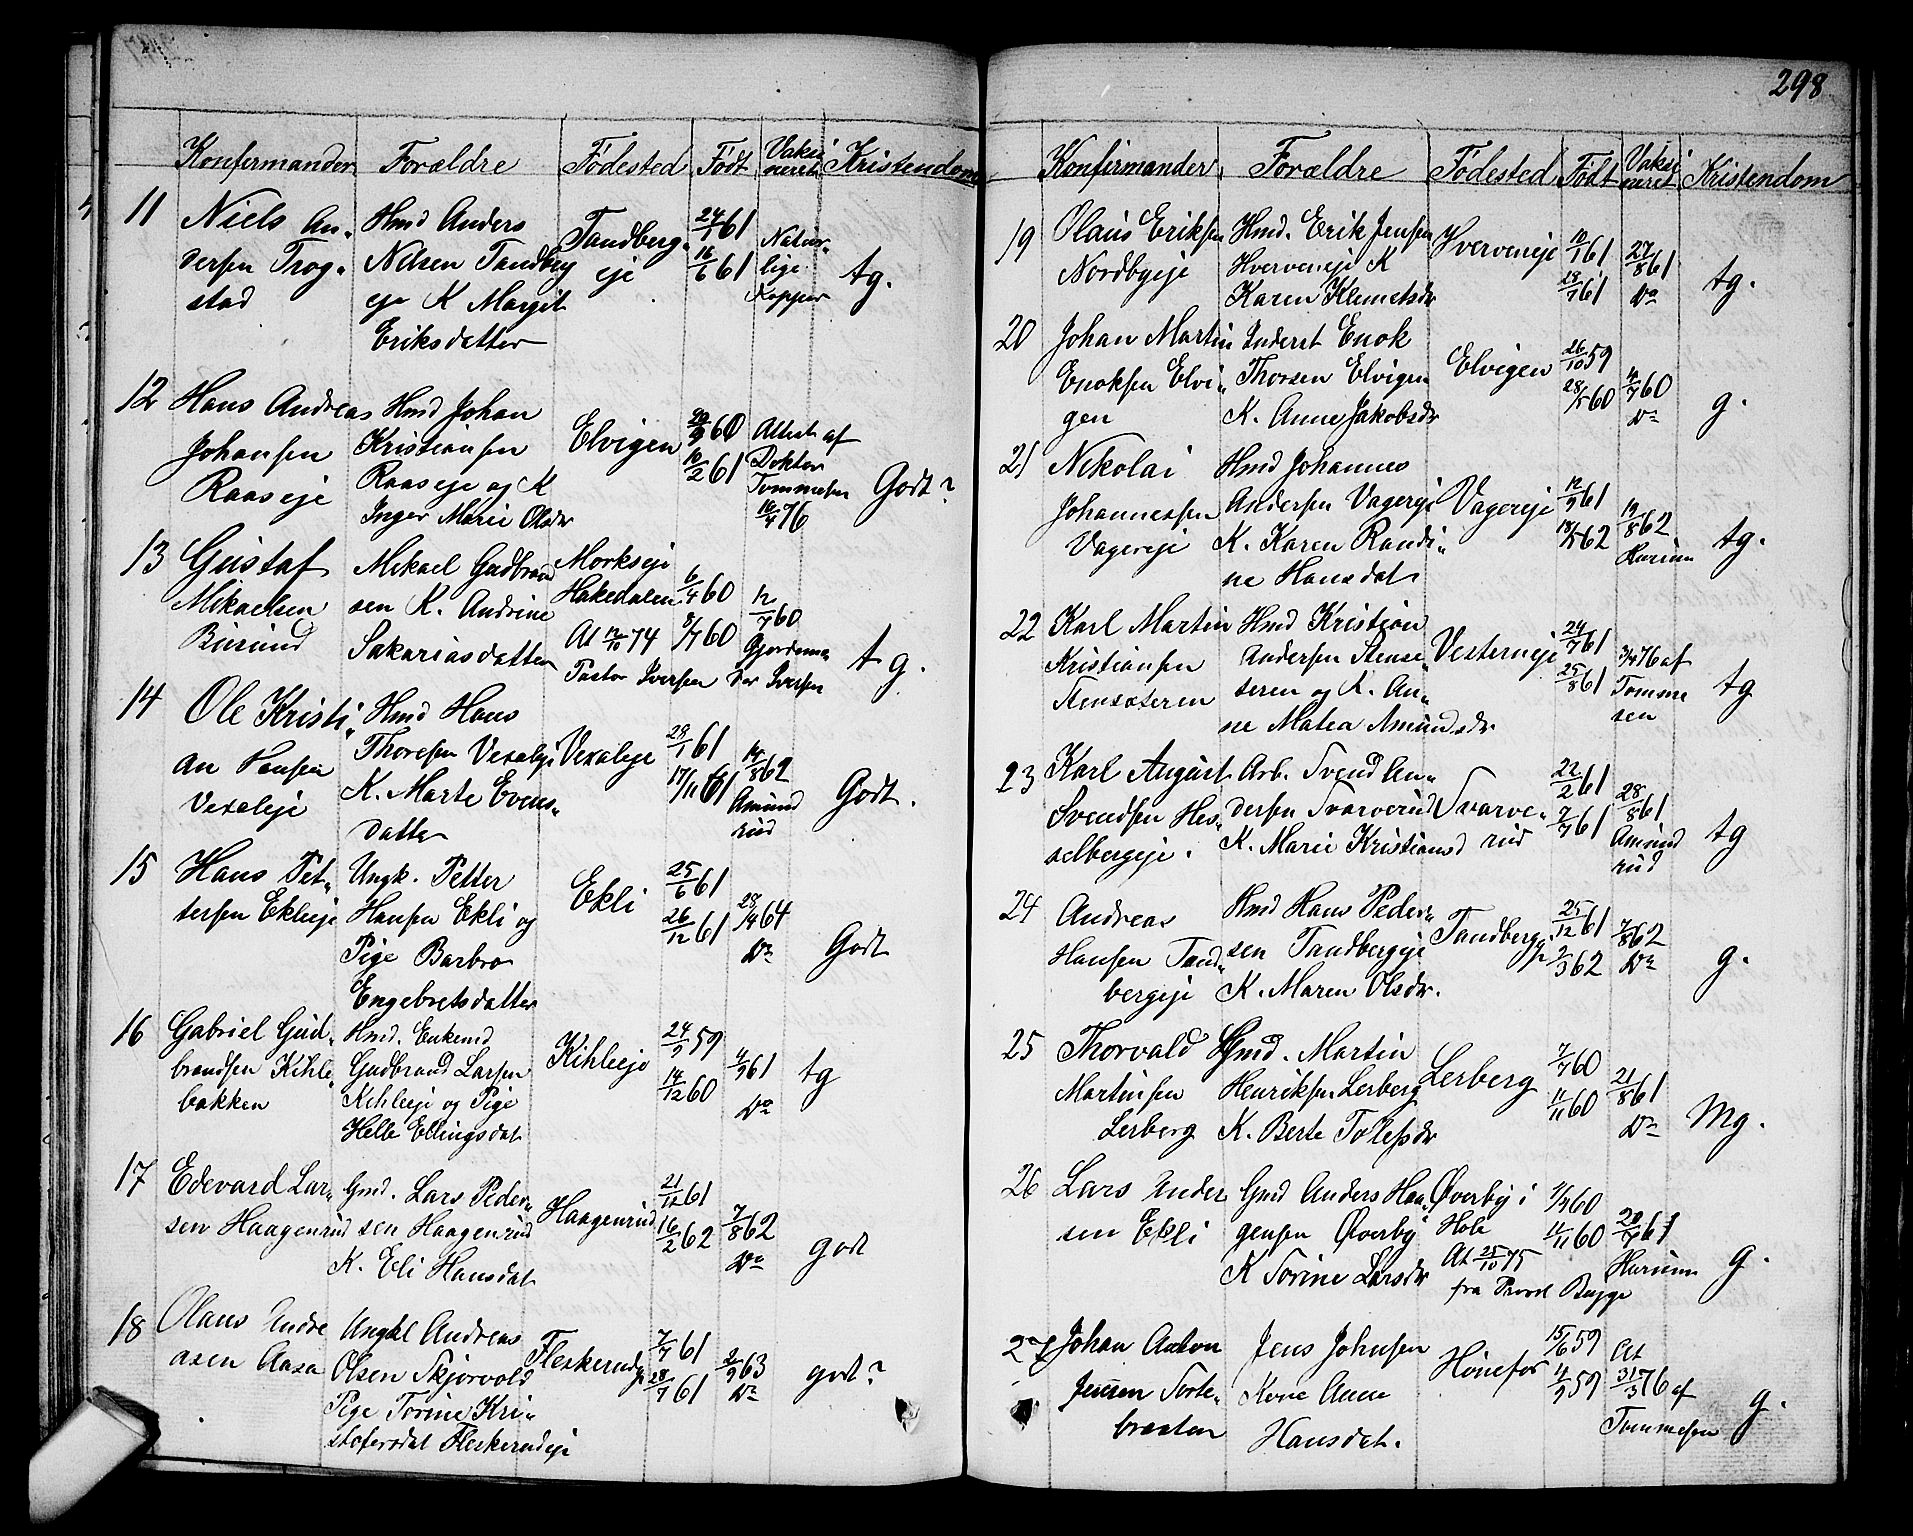 298
Konfirmander Forældre Fødested Født Vaksineret Kristendom
11 Niels Andersen Trogstad
Hmd Anders
Nilsen Tandberg
eje K Margit
Eriksdatter
Tandberg-
eje
24/1 61
16/6 61
Natur-
lige
Kopper
tg.
12 Hans Andreas
Johansen
Raaseje
Hmd Johan
Kristiansen
Raaseje og K
Inger Marie Olsdr
Elvigen
60
10/2 61
Attest af
Doktor
Tommesen
16/4 76
Godt?
13 Gustaf
Mikaelsen
Mikael Gudbrand
sen K. Andrine
Sakariasdatter
Morkseje
Hakedalen
At 74
Pastor Iversen
6/4 60
8/7 60
12/7 60
Iversen
tg.
14 Ole Kristi-
an Hansen
Vexaleje
Hmd Hans
Thoresen Vexaleje
K. Marte Evens-
datter
Vexaleje
28/1 61
17/11 61
14/8 62
Amund
rud
Godt.
15 Hans Pet-
tersen Eklieje
Ungk. Petter
Hansen Ekli og
Pige Barbro
Engebretsdatter
Ekli
25/6 61
26/12 61
28/4 64
Do
Godt
16 Gabriel Gud-
brandsen Kihle-
bakken
Hmd. Enkemd
Gudbrand Larsen
Kihleeje og Pige
Helle Ellingsdat
Kihleeje
24/9 59
14/12 60
61
Do
tg
17 Edevard Lar-
sen Haagenrud
Gmd. Lars Peder-
sen Haagenrud
K. Eli Hansdat
Haagenrud
21/12 61
16/2 62
7/8 62
Do
godt
18 Olaus Andre
asen Aasa
Ungkl Andreas
Olsen Skjørvold
Pige Torine Kri-
stofersdat Fleskerudeje
Fleskerudeje
7/7 61
28/7 61
2/9 63
Do
godt?
Konfirmander Forældre Fødested Født Vaksineret Kristendom
19 Olaus Eriksen
Nordbyeje
Hmd. Erik Jensen
Hverveneje K
Karen Klemetsdr
Hverveneje
61
61
27/8 61
Do
tg.
20 Johan Martin
Enoksen Elvi-
gen
Inderst Enok
Thorsen Elvigen
K. Anne Jakobsdr
Elvigen
26/10 59
28/5 60
4/7 60
Do
g.
21 Nikolai
Johannessen
Vagereje
Hmd Johannes
Andersen Vagereje
K. Karen Randi-
ne Hansdat.
Vagereje
12/9 61
18/5 62
19/8 62
tg.
22 Karl Martin
Kristiansen
Stensæteren
Hmd Kristian
Andersen Stense-
teren og K. An-
ne Matea Amundsdr
Vesterneje
24/7 61
25/8 61
76 af
Tomme
sen
tg
23 Karl August
Svendsen Hes-
selbergeje.
Arb. Svend An-
dersen Svarverud
K. Marie Kristiansd
Svarve-
rud
22/2 61
7/7 61
28/8 61
Amund
rud
tg
24 Andreas
Hansen Tand-
bergeje
Hmd Hans Peder-
sen Tandbergeje
K. Maren Olsdr.
Tandbergeje
25/12 61
2/3 62
7/8 62
Do
g.
25 Thorvald
Martinsen
Lerberg
Gmd. Martin
Henriksen Lerberg
K. Berte Tolefsdr
Lerberg
7/7 60
11/11 60
21/8 61
Do
Mg.
26 Lars Ander
sen Ekli
Gmd Anders Haa-
gensen Øverby
K Torine Larsdr
Øverby i
Hole
At 25/10 75
fra Provst Bugge
60
11/11 60
61
g.
27 Johan Anton
Jensen Torte-
braaten
Jens Johnsen
Kone Anne
Hansdat.
Hønefos
15/6 59
11/9 59
At
31/3 76 af
Tommesen
g.